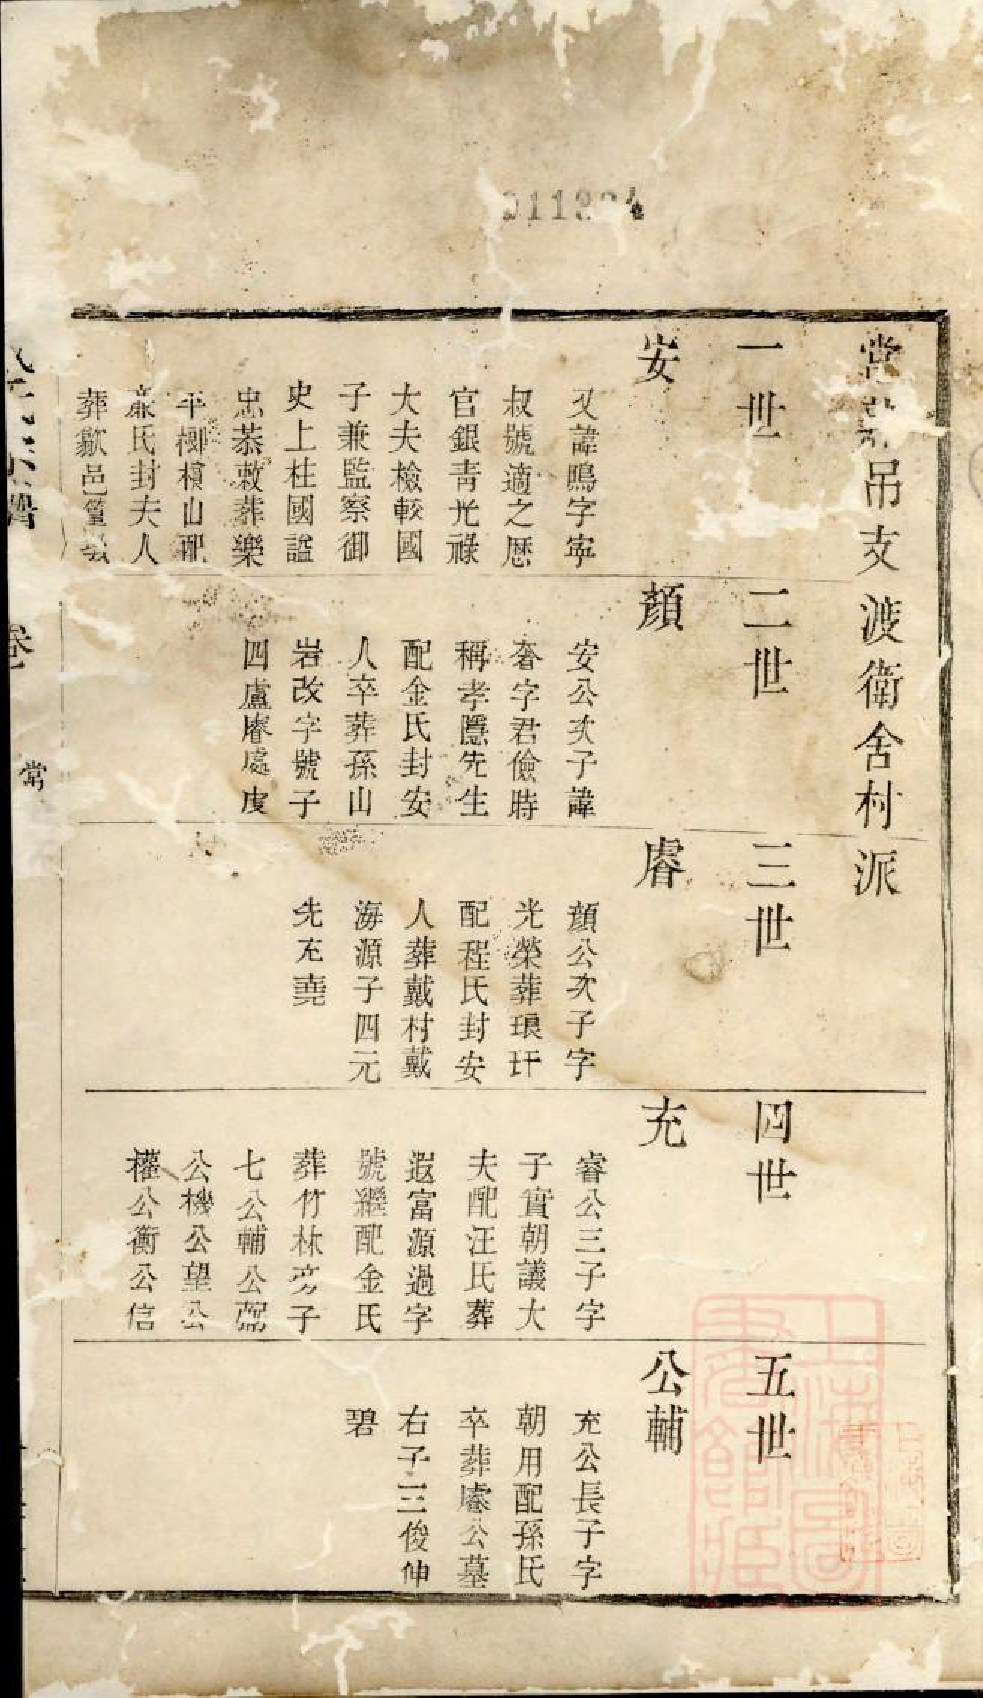 吊支渡衛舍村派
一世
安
又諱鳴字寧
叔號適之歷
官銀青光祿
大夫檢較國
子兼監察御
史上柱國諡
忠恭敕葬樂
平柳橫山配
嚴氏封夫人
葬歙邑篁墩
二世
顏
安公次子諱
奢字君儉時
稱孝隱先生
配金氏封安
人卒葬孫山
岩改字號子
四盧睿處虔
三世
睿
顏公次子字
光榮葬琅玕
配程氏封安
人葬戴村戴
海源子四元
先充堯
四世
充
睿公三子字
子實朝議大
夫配汪氏葬
遐富源過字
號繼配金氏
葬竹林旁子
七公輔公弼
公機公望公
權公衡公信
五世
公輔
充公長子字
朝用配孫氏
卒葬睿公墓
右子三俊伸
碧
卷
常